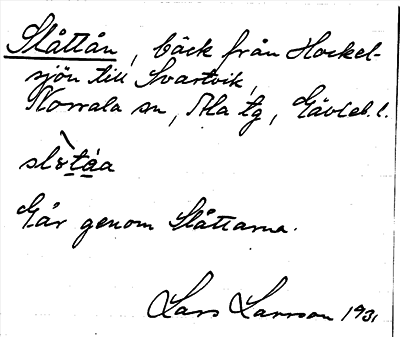 Slåttån, bäck från Hockel-
sjön till Svartvik,
Norrala sn, Ala tg, Gävleb. l.
slɞ̀t́áa
Går genom Slåttarna.
Lars Larsson 1931